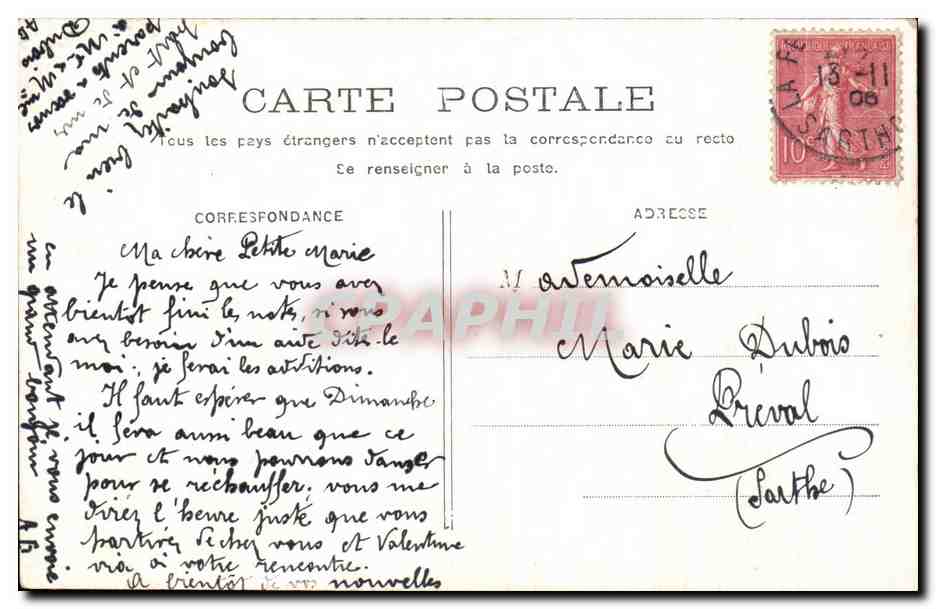 CARTE POSTALE
Tous les pays étrangers n'acceptent pas la correspondance au recto
Se renseigner à la poste.
CORRESPONDANCE
ADRESSE
Ma chère Petite Marie
Je pense que vous avez
bientot fini les notes, si vous
avez besoin d'un aide dites-le
moi, je ferai les additions.
Il faut espérer que Dimanche
il fera aussi beau que ce
jour et nous pourrons danser
pour se réchauffer. vous me
direz l'heure juste que vous
partirez de chez vous et Valentine
via à votre rencontre.
A bientôt de vos nouvelles
en attendant je vous envoie
un grand bonjour
AB
souhaitez bien le
bonjour de ma
part et de
parents à vos
à Mr & Mme
Dubois
AB
Mademoiselle
Marie Dubois
Préval
(Sarthe)
LA FE
13 -11
06
SARTHE
10
CRAPHIL